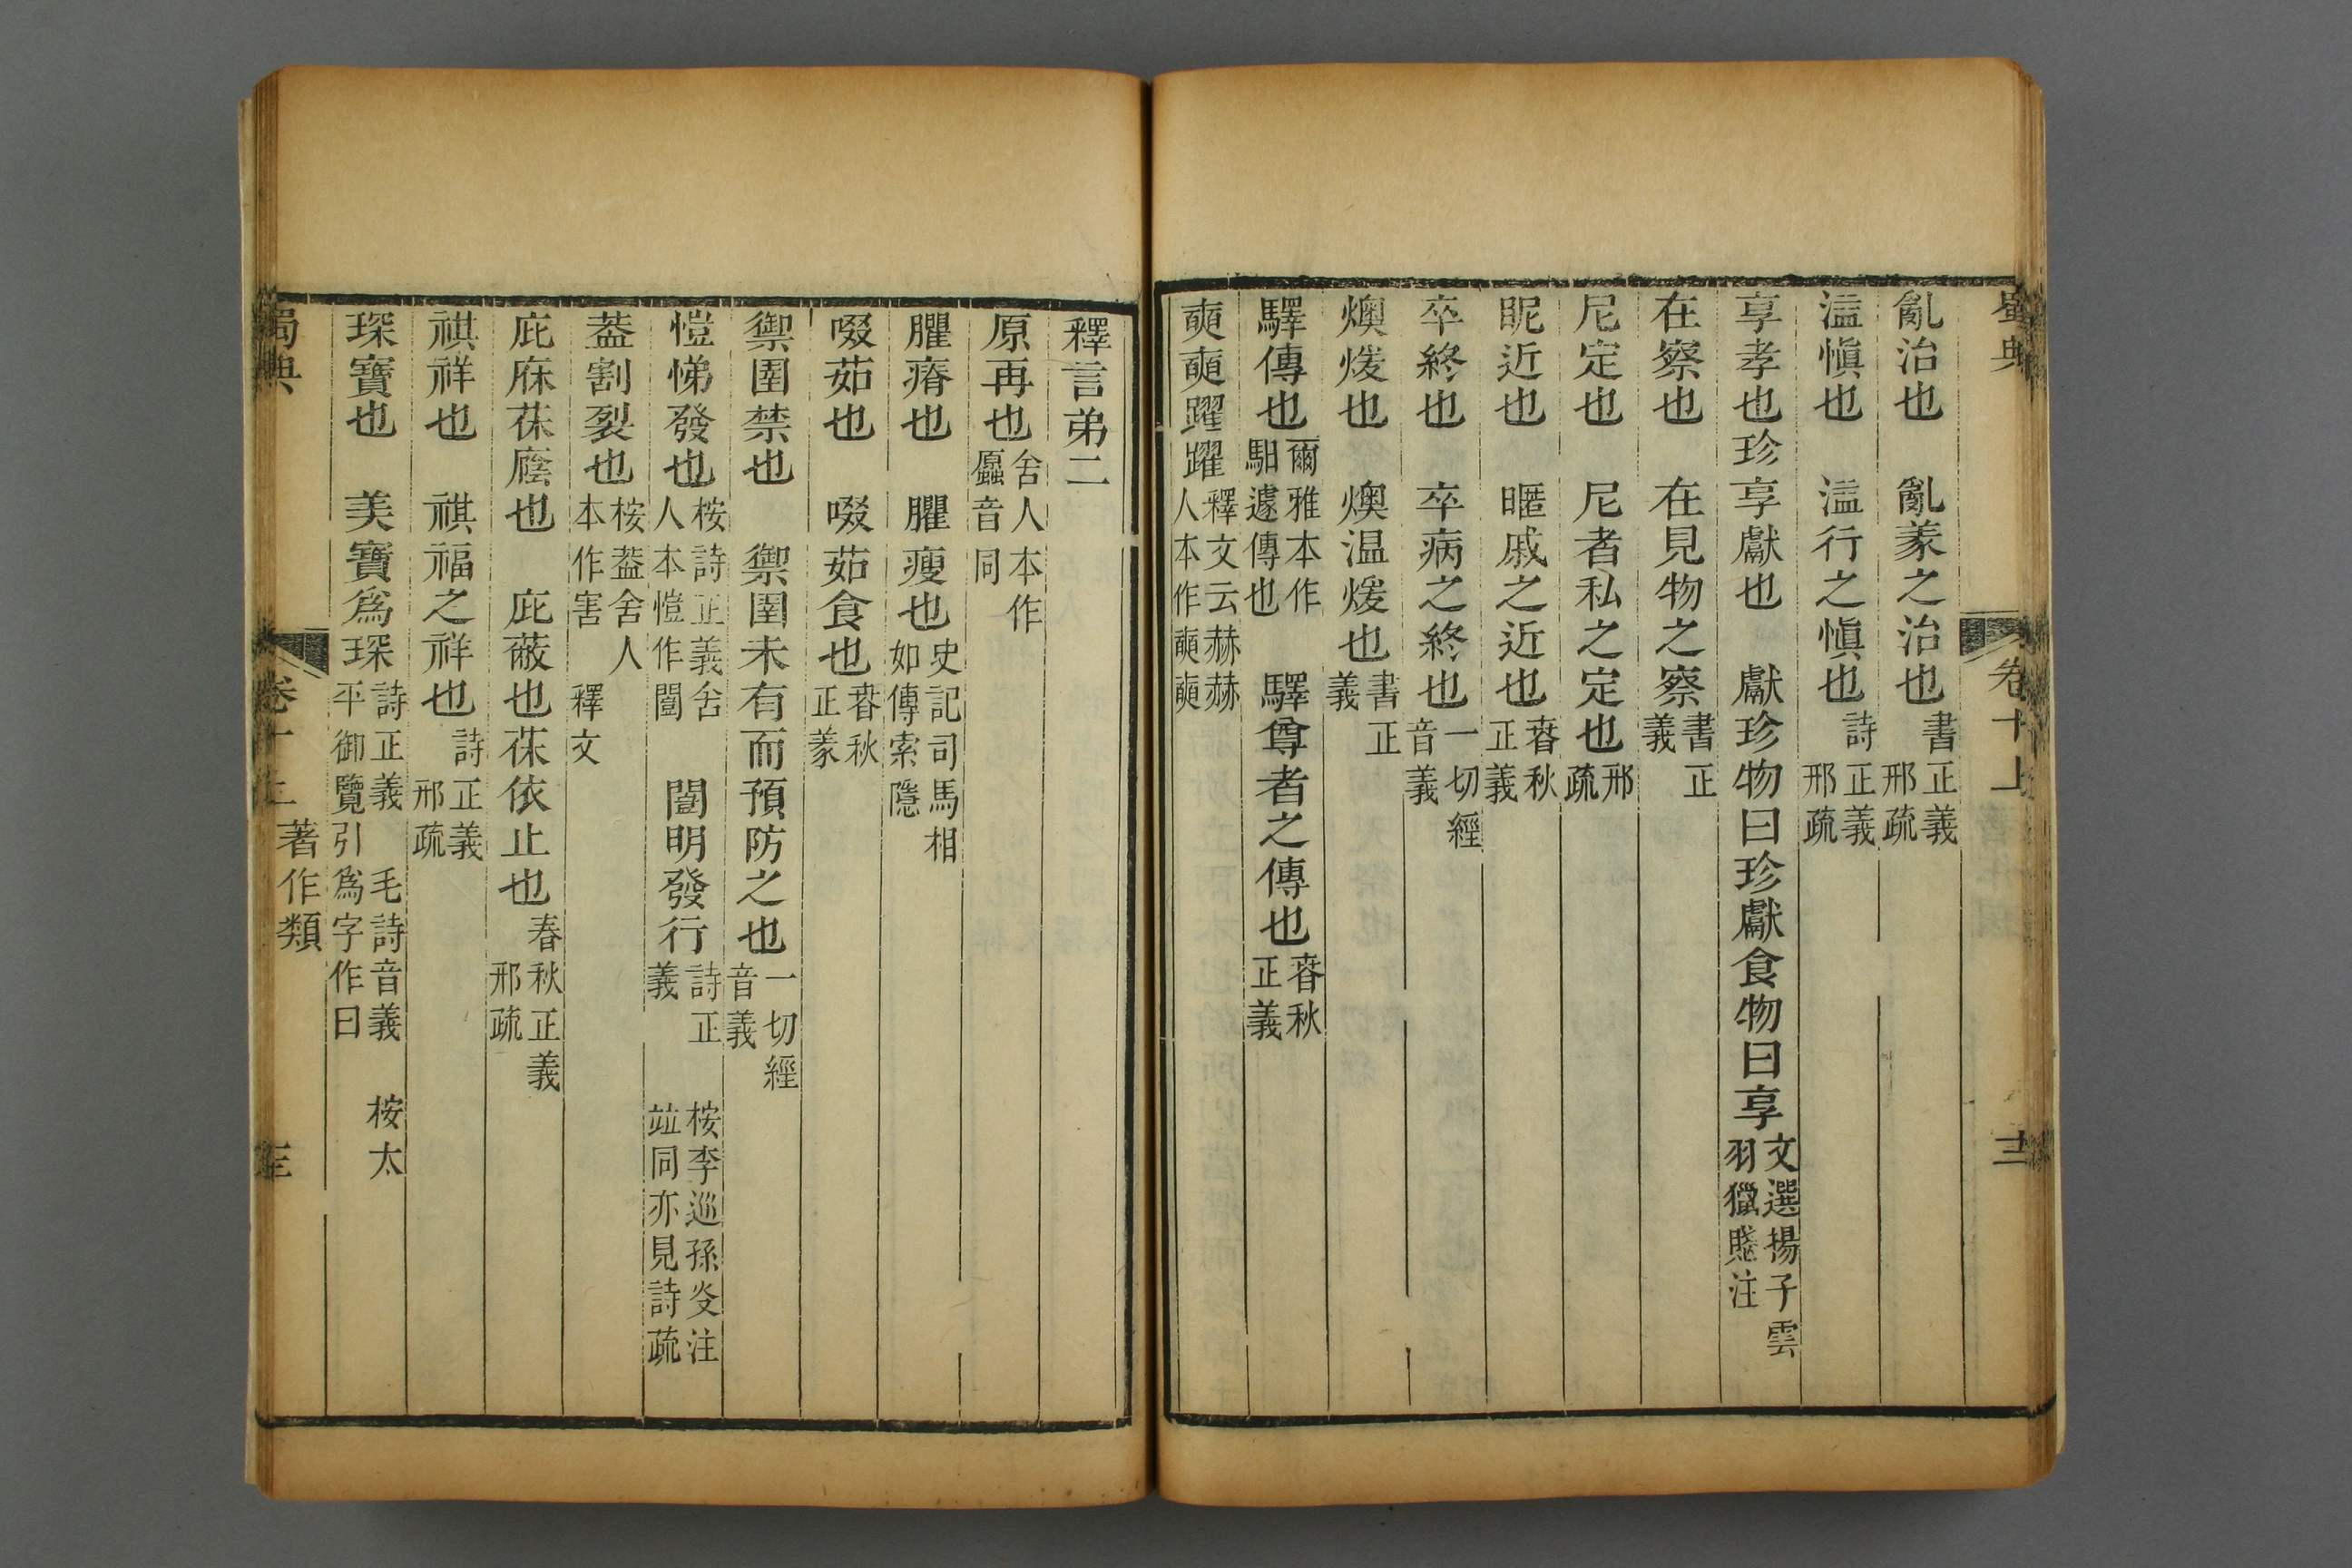 蜀典
卷十上
亂治也　亂義之治也書正義邢疏
溢愼也　溢行之愼也詩正義邢疏
享孝也珍享獻也　獻珍物曰珍獻食物曰享文選揚子雲羽獵賦注
在察也　在見物之察書正義
尼定也　尼者私之定也邢疏
昵近也　暱戚之近也春秋正義
卒終也　卒病之終也一切經音義
燠煖也　燠温煖也書正義
驛傳也爾雅本作馹遽傳也　驛尊者之傳也春秋正義
奭奭躍躍釋文云赫赫舍人本作奭奭
釋言弟二
原再也舍人本作厵音同
臞瘠也　臞瘦也史記司馬相如傳索隱
啜茹也　啜茹食也春秋正義
禦圉禁也　禦圉未有而預防之也一切經音義
愷悌發也桉詩正義舍人本愷作闓　闓明發行詩正義　桉李巡孫炎注竝同亦見詩疏
葢割裂也桉葢舍人本作害　釋文
庇庥茠廕也　庇蔽也茠依止也春秋正義邢疏
祺祥也　祺福之祥也詩正義邢疏
琛寶也　美寶爲琛詩正義　毛詩音義　桉太平御覽引爲字作曰
蜀典
卷十上
著作類